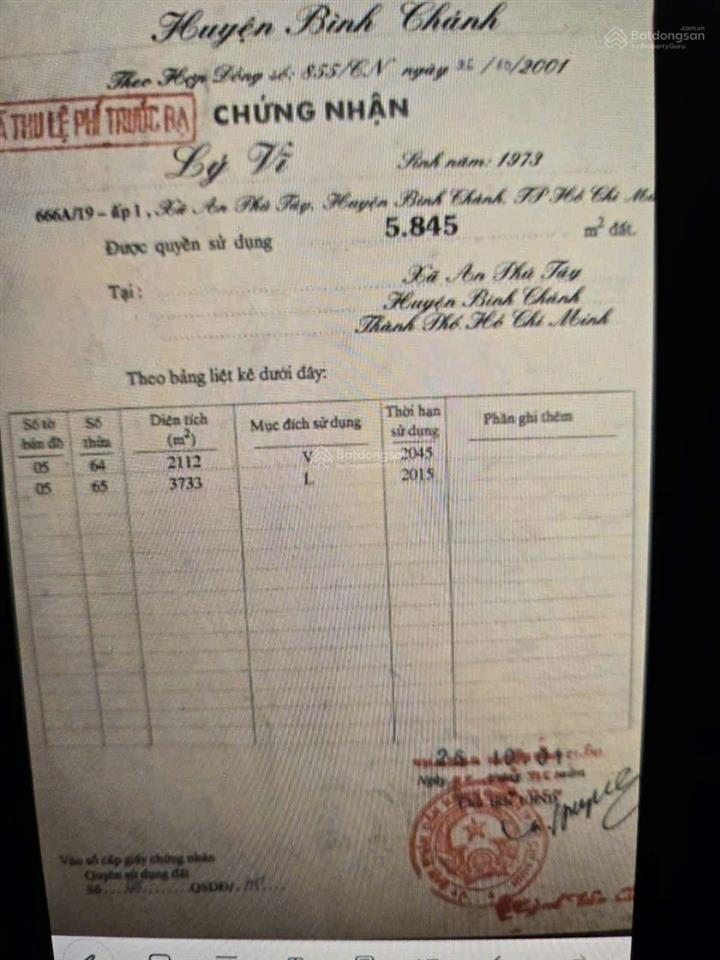 Huyện Bình Chánh
Batdongsan.com.vn
by PropertyGuru
Theo Hợp Đồng số: 855/CN ngày 26/10/2001
Ã THU LỆ PHÍ TRƯỚC BẠ
CHỨNG NHẬN
Lý Vĩ Sinh năm: 1973
666A/19 - ấp 1, Xã An Phú Tây, Huyện Bình Chánh, TP Hồ Chí Mi
Được quyền sử dụng 5.845 m² đất.
Tại: Xã An Phú Tây
Huyện Bình Chánh
Thành Phố Hồ Chí Minh
Theo bảng liệt kê dưới đây:
Số tờ bản đồ Số thửa Diện tích (m²) Mục đích sử dụng Thời hạn sử dụng Phần ghi thêm
05 64 2112 V 2045
05 65 3733 L 2015
Batdongsan
26 10 01
Ngày
Vào sổ cấp giấy chứng nhận
Quyền sử dụng đất
Số QSDĐ/